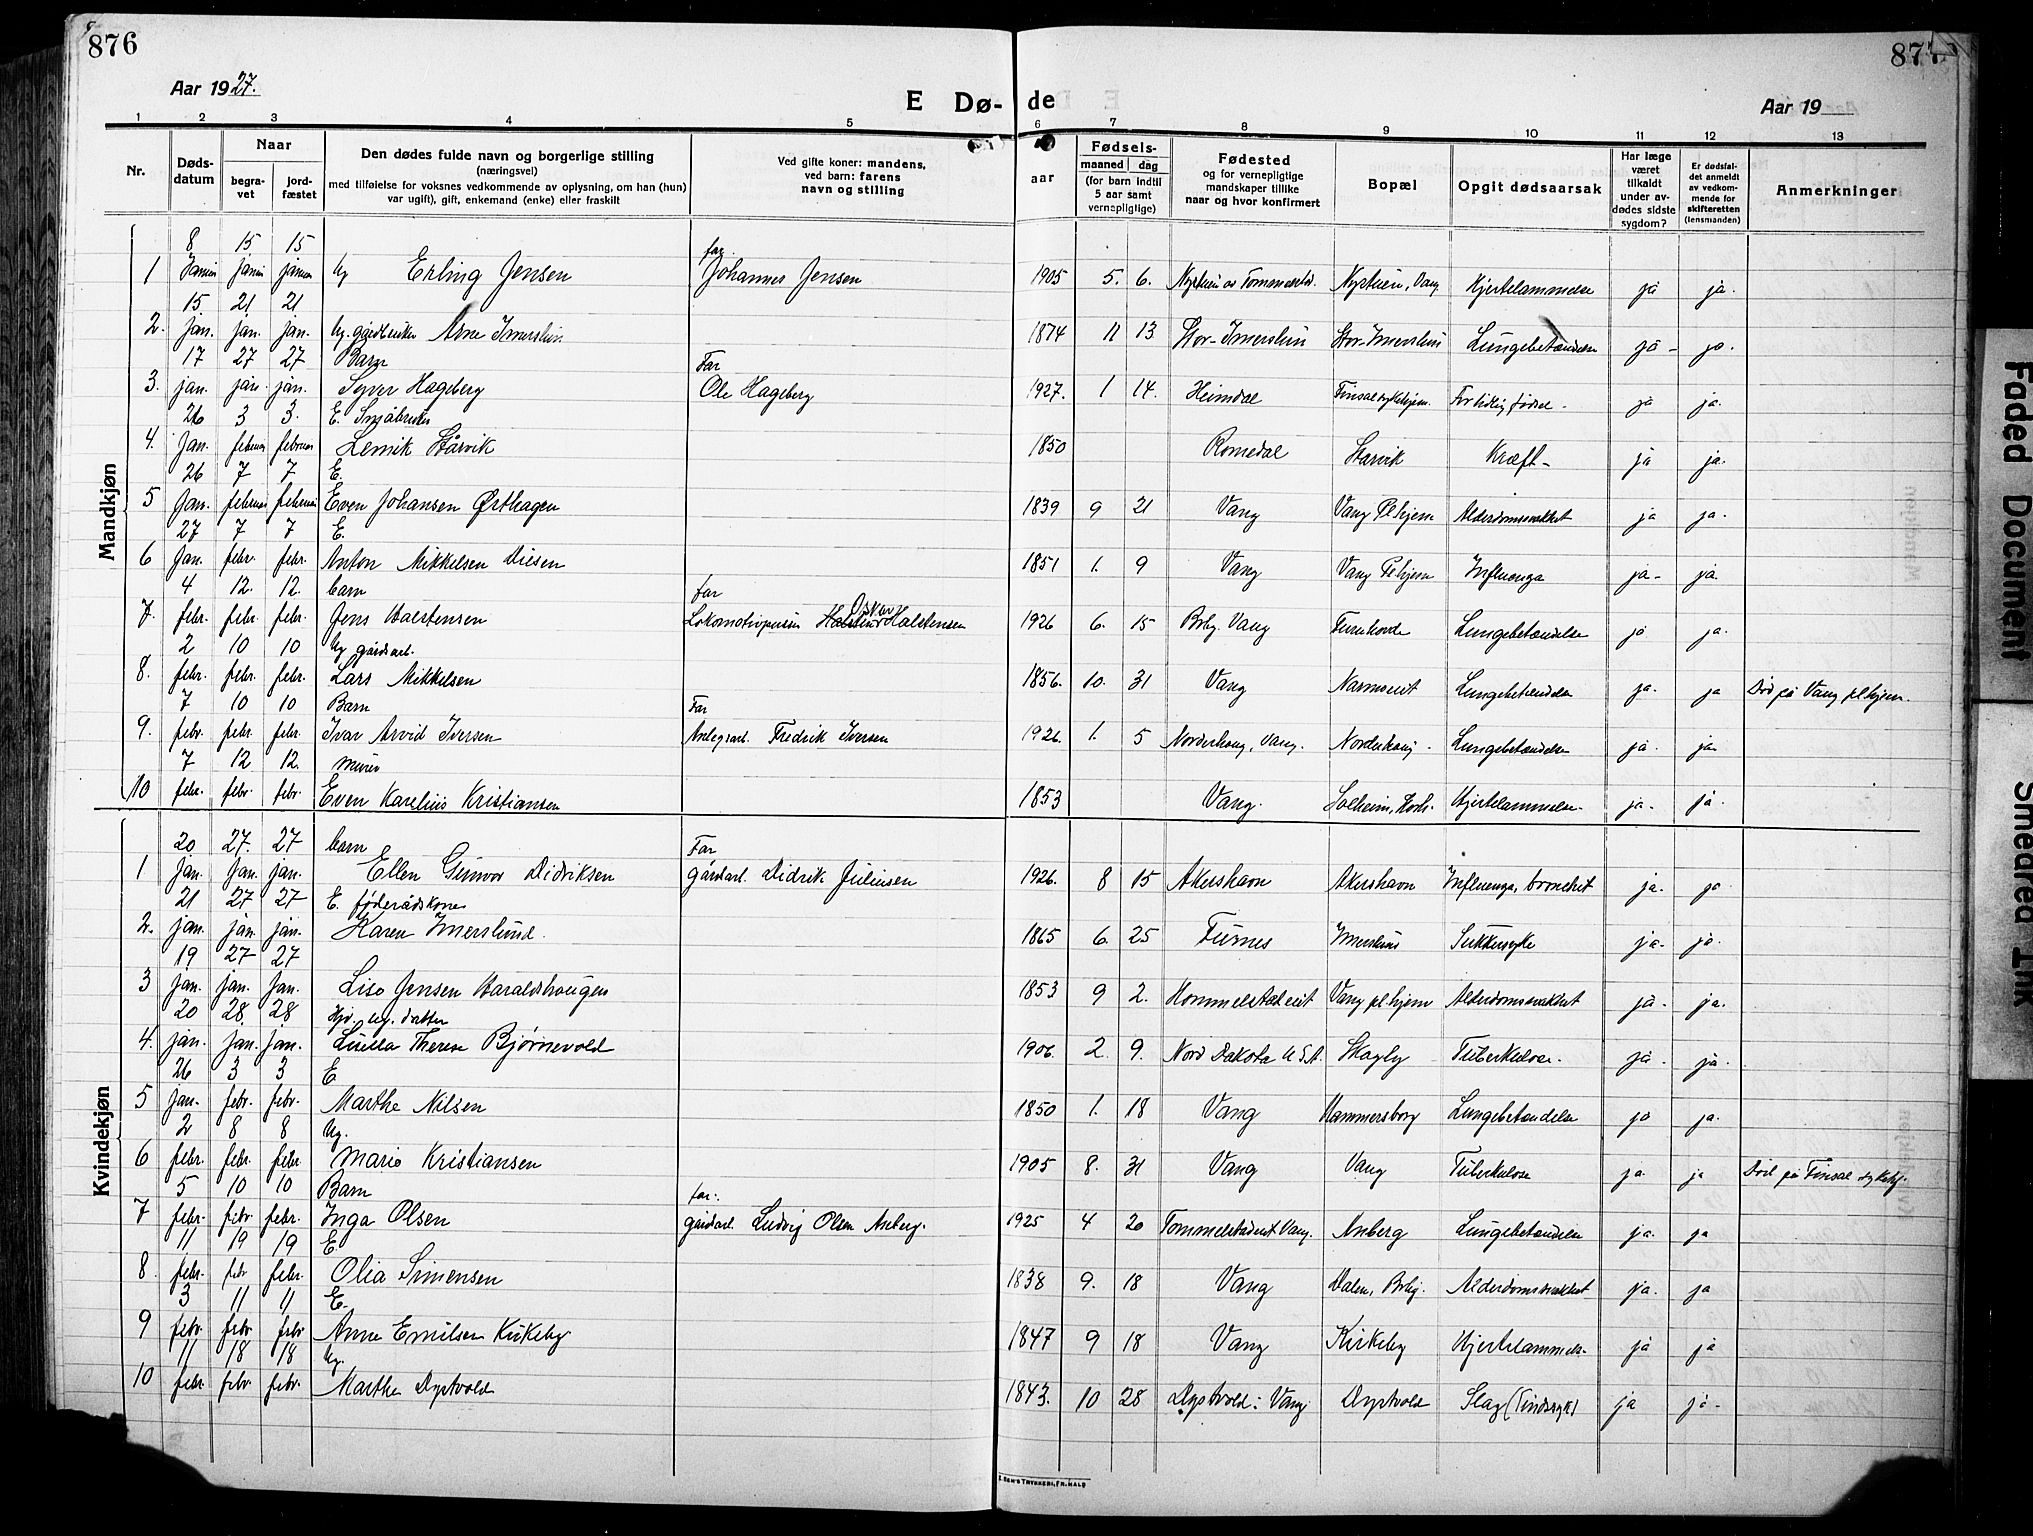 876
877
Aar 1927.
E Dø-de
Aar 19
1 2 3 4 5 6 7 8 9 10 11 12 13
Nr.
Døds-datum
Naar
begra-vet
jord-fæstet
Den dødes fulde navn og borgerlige stilling
(næringsvei)
med tilføielse for voksnes vedkommende av oplysning, om han (hun)
var ugift), gift, enkemand (enke) eller fraskilt
Ved gifte koner: mandens,
ved barn: farens
navn og stilling
aar
Fødsels-
maaned dag
(for barn indtil
5 aar samt
vernepligtige)
Fødested
og for vernepligtige
mandskaper tillike
naar og hvor konfirmert
Bopæl
Opgit dødsaarsak
Har læge
været
tilkaldt
under av-
dødes sidste
sygdom?
Er dødsfal-
det anmeldt
av vedkom-
mende for
skifteretten
(lensmanden)
Anmerkninger
Mandkjøn
8 15 15 far
1 Ug Erling Jensen Johannes Jensen 1905 5. 6. Nystuen, Vang Hjertelammelse ja ja.
15 21 21
2. jan. jan. jan. Ug. gårdbruker Arne Imerslun 1874 11 13 Stor-Imerslun Stor-Imerslun Lungebetændelse ja - ja.
17 27 27 Barn Far
3. jan. jan. jan. Syver Hageberg Ole Hageberg 1927. 1 14. Heimdal Finsal sykehjem. For tidlig fødsel - ja ja.
26 3 3. E. Småbruker
4. Jan. februar februar Lemik Stårvik 1850 Romedal Starvik Kræft - ja ja.
26 7 7 E.
5 Jan. februar februar Even Johansen Ørthagen 1839 9 21 Vang Vang Pl.hjem Alderdomssvakhet ja ja.
27 7 7 E.
6 Jan. febr. febr. Anton Mikkelsen Dilsen 1851 1. 9 Vang Vang Pl.hjem Influenza ja- ja.
4 12. 12. barn far
7. febr. febr. febr. Jens Halstensen Oskar Halstensen 1926 6. 15 Brbg. Vang Furukovde Lungebetændelse ja ja.
2 10 10 Ug gårdsarb.
8. febr. febr. febr. Lars Mikkelsen 1856. 10. 31 Vang Lungebetændelse ja. ja Død på Vang pl.hjem.
7 10 10 Barn Far
9. febr. febr. febr. Ivar Arvid Iversen Anlegsarb. Fredrik Iversen 1926. 1. 5 Norderhaug, Vang. Norderhaug - Lungebetændelse ja. ja
7 12 12. murer
10 febr. febr. febr. Even Karelius Kristiansen 1853 Vang. Solheim, Hjertelammelse ja. ja.
Kvindekjøn
20 27. 27 barn Far
1 jan. jan. jan. Ellen Gunvor Didriksen gårdsarb. Didrik Juliusen 1926. 8 15 Akershavn Akershavn Influenza, bronchit ja. ja
21 27 27 E. føderådskone
2. jan. jan. jan. Karen Imerslund. 1865 6. 25 Furnes Imerslun Sukkersyke ja- ja.
19 27 27
3 Jan. jan. Jan. Lise Jensen Haraldshaugen 1853 9 2. Hommelstadeiet Vang pl.hjem Alderdomssvakhet ja. ja.
20 28. 28 Hjv. ug. datter
4. jan. jan. jan. Luella Therese Bjørnevold 1906. 2. 9. Nord Dakota U.S.A. Skogly Tuberkulose. ja. ja.
26 3 3 E
5 jan. febr. febr. Marthe Nilsen 1850 1. 18 Vang Hammersborg Lungebetændelse ja ja.
2 8 8 Ug.
6 febr. febr. febr Marie Kristiansen 1905 8. 31 Vang Vang Tuberkulose ja ja Død på Finsal sykehj.
5 10 10 Barn far:
7 febr. febr febr. Inga Olsen gårdsarb. Ludvig Olsen Anberg. 1925 4 20 Tommelstadeiet Vang. Anberg Lungebetændelse ja. ja
11 19 19 E.
8. febr. febr febr. Olia Simensen 1838 9. 18 Vang Dalen, Brbg. Alderdomssvakhet ja. ja
3 11 11 E.
9 febr. febr. febr Anne Emilsen Kirkeby 1847 9 18 Vang Kirkeby Hjertelammelse. ja ja
11 18 18 Ug.
10 febr febr. febr. Marthe Dystvold 1843. 10 28 Dystvold: Vang Dystvold Slag (Sindssyk) ja ja.
Faded Document
Smeared Ink